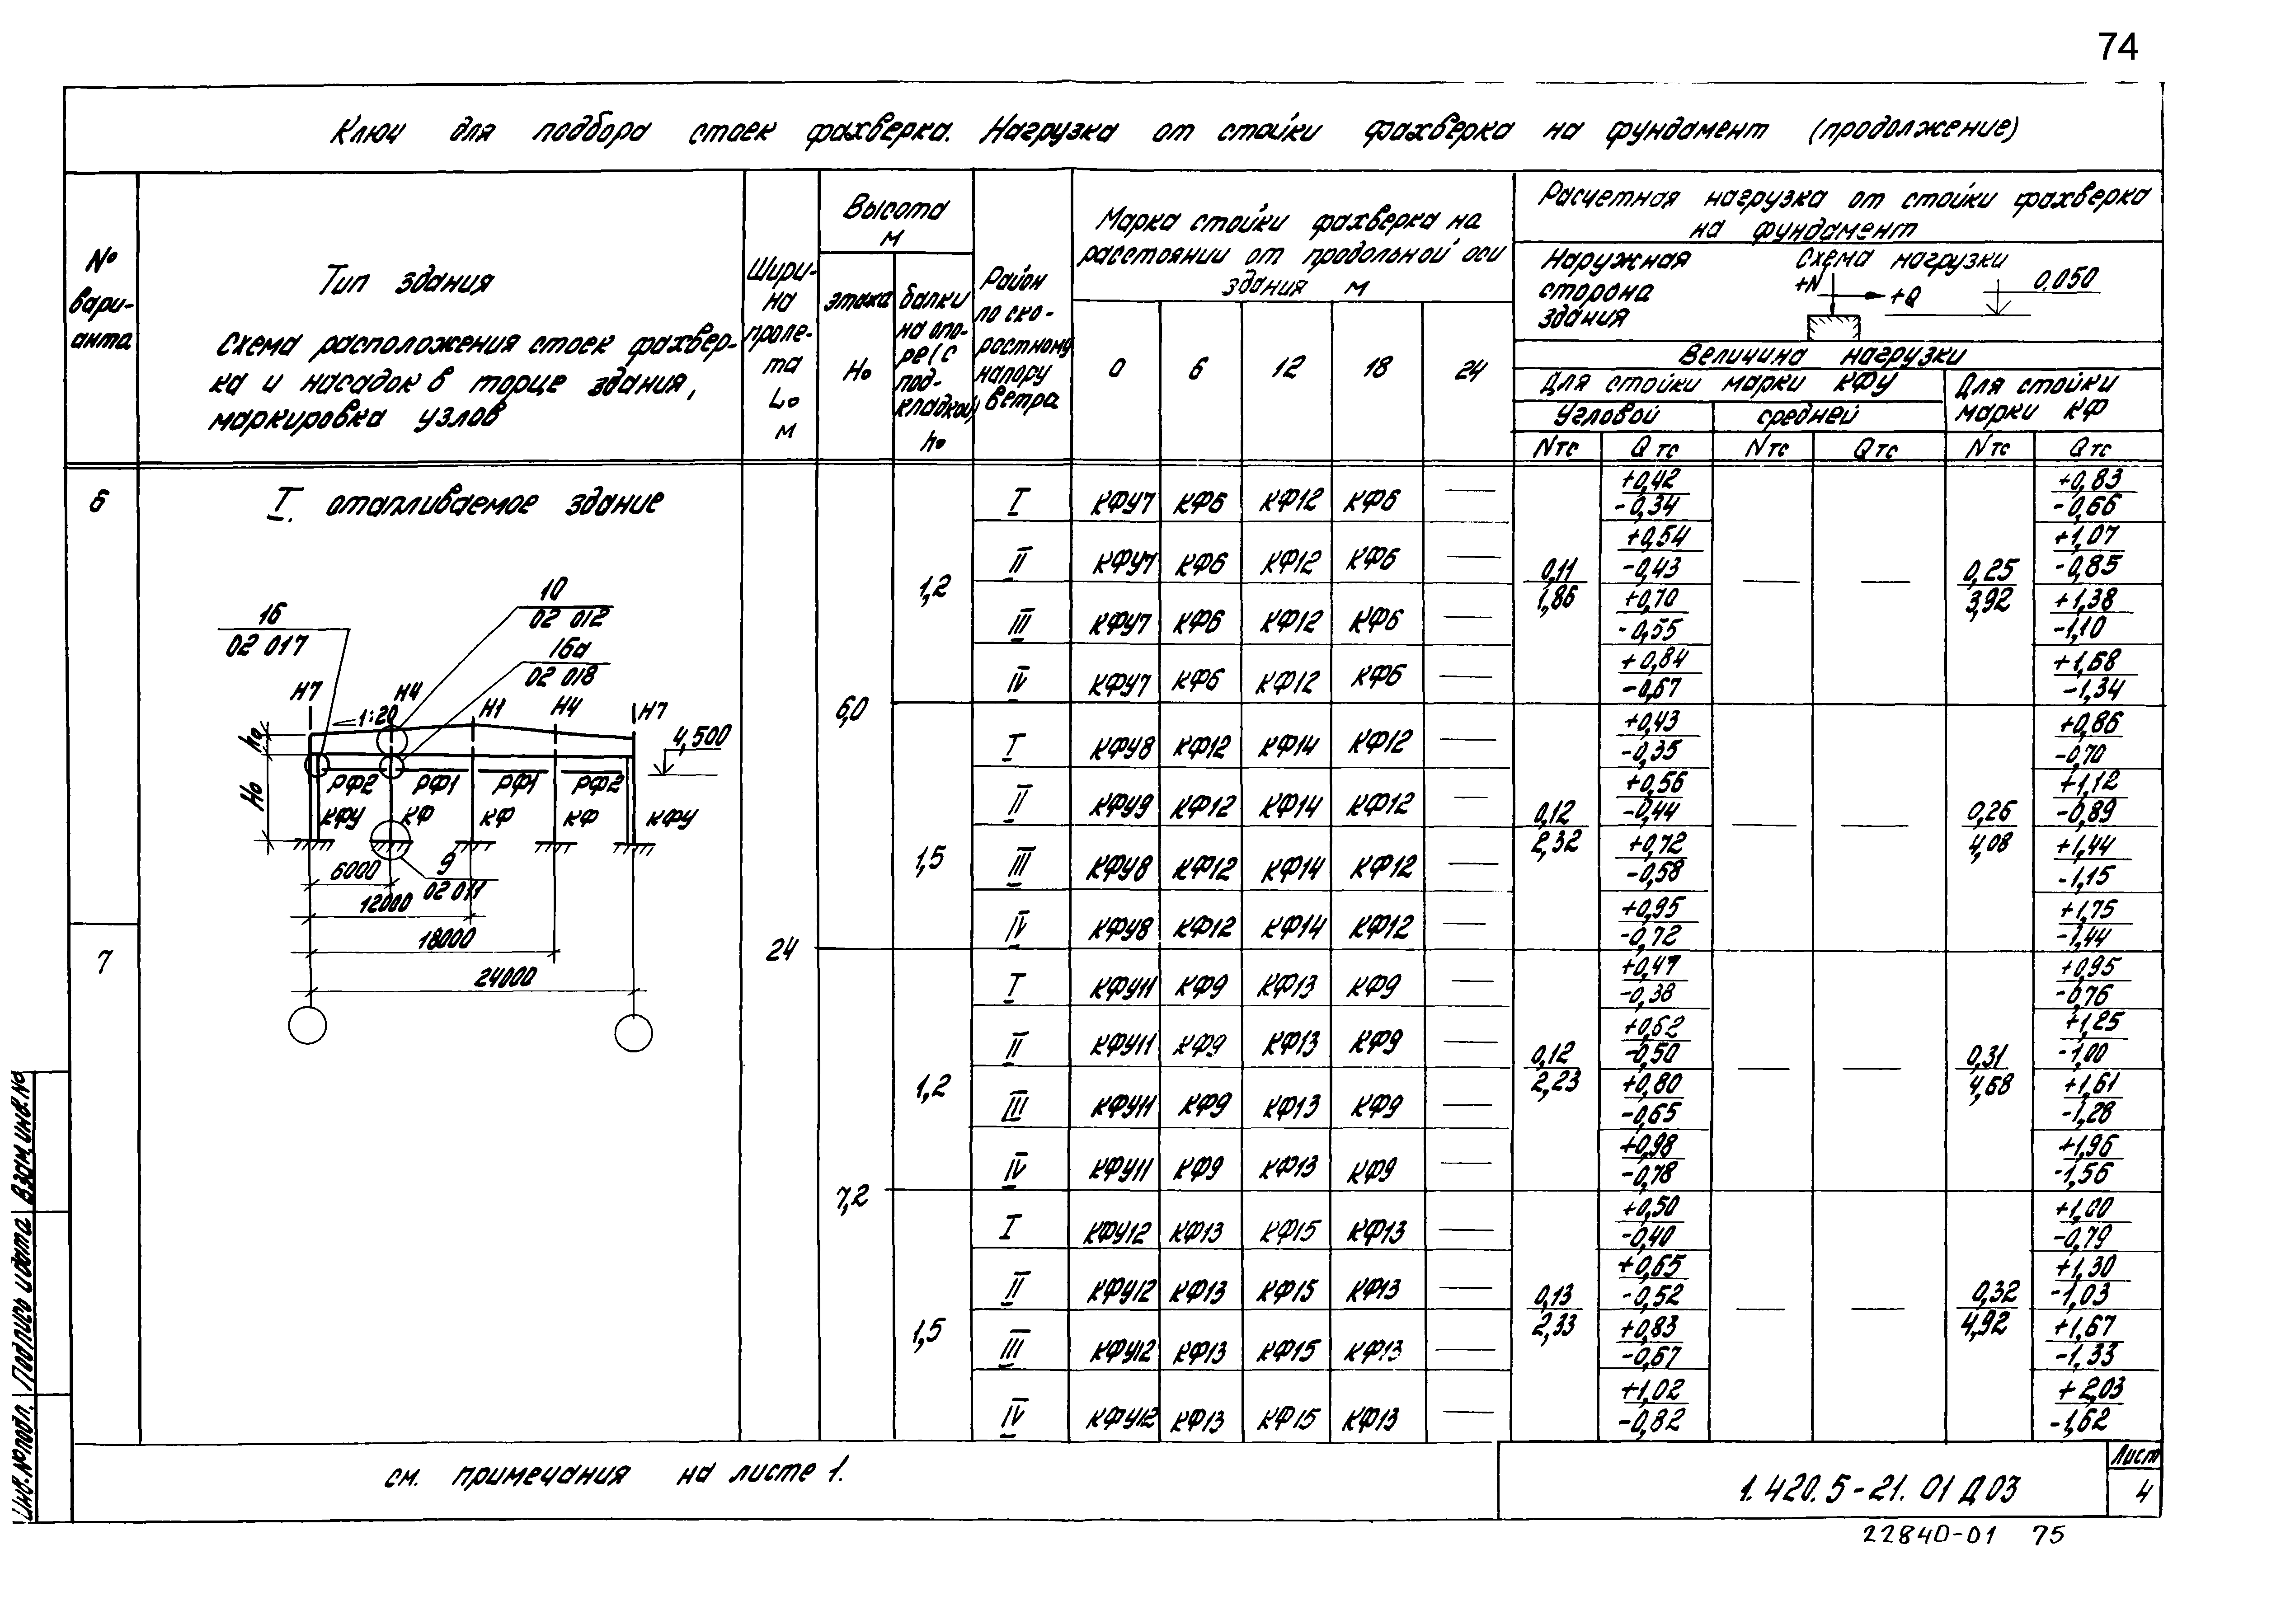 74
Ключ для подбора стоек фахверка. Нагрузка от стойки фахверка на фундамент (продолжение)
№ вари- анта
Тип здания
Схема расположения стоек фахвер-
ка и насадок в торце здания,
маркировка узлов
Шири- на проле- та Lо м
Высота м
этажа Hо
балки на опо- ре (с под- кладкой) hо
Район по ско- ростному напору ветра
Марка стойки фахверка на
расстоянии от продольной оси
здания м
0 6 12 18 24
Расчетная нагрузка от стойки фахверка
на фундамент
Наружная сторона здания
Схема нагрузки
+N +Q 0,050
Величина нагрузки
Для стойки марки КФУ
Для стойки марки КФ
Угловой средней
N тс Q тс N тс Q тс N тс Q тс
6
I. отапливаемое здание
10
02 012
16
02 017
16а
02 018
Н7 Н4 Н1 Н4 Н7
1:20
4,500
hо
Hо
РФ2 РФ1 РФ1 РФ2
КФУ КФ КФ КФ КФУ
9
02 011
6000
12000
18000
24000
7
24
6,0
1,2
I КФУ7 КФ6 КФ12 КФ6 — +0,42 -0,34 +0,83 -0,66
II КФУ7 КФ6 КФ12 КФ6 — +0,54 -0,43 +1,07 -0,85
0,11 1,86 — — 0,25 3,92
III КФУ7 КФ6 КФ12 КФ6 — +0,70 -0,55 +1,38 -1,10
IV КФУ7 КФ6 КФ12 КФ6 — +0,84 -0,67 +1,68 -1,34
1,5
I КФУ8 КФ12 КФ14 КФ12 — +0,43 -0,35 +0,86 -0,70
II КФУ9 КФ12 КФ14 КФ12 — +0,56 -0,44 +1,12 -0,89
0,12 2,32 — — 0,26 4,08
III КФУ8 КФ12 КФ14 КФ12 — +0,72 -0,58 +1,44 -1,15
IV КФУ8 КФ12 КФ14 КФ12 — +0,95 -0,72 +1,75 -1,44
7,2
1,2
I КФУ11 КФ9 КФ13 КФ9 — +0,47 -0,38 +0,95 -0,76
II КФУ11 КФ9 КФ13 КФ9 — +0,62 -0,50 +1,25 -1,00
0,12 2,23 — — 0,31 4,68
III КФУ11 КФ9 КФ13 КФ9 — +0,80 -0,65 +1,61 -1,28
IV КФУ11 КФ9 КФ13 КФ9 — +0,98 -0,78 +1,96 -1,56
1,5
I КФУ12 КФ13 КФ15 КФ13 — +0,50 -0,40 +1,00 -0,79
II КФУ12 КФ13 КФ15 КФ13 — +0,65 -0,52 +1,30 -1,03
0,13 2,33 — — 0,32 4,92
III КФУ12 КФ13 КФ15 КФ13 — +0,83 -0,67 +1,67 -1,33
IV КФУ12 КФ13 КФ15 КФ13 — +1,02 -0,82 +2,03 -1,62
см. примечания на листе 1.
1.420.5-21.01 Д03
Лист
4
22840-01 75
Инв. № подл. Подпись и дата Взам. инв. №